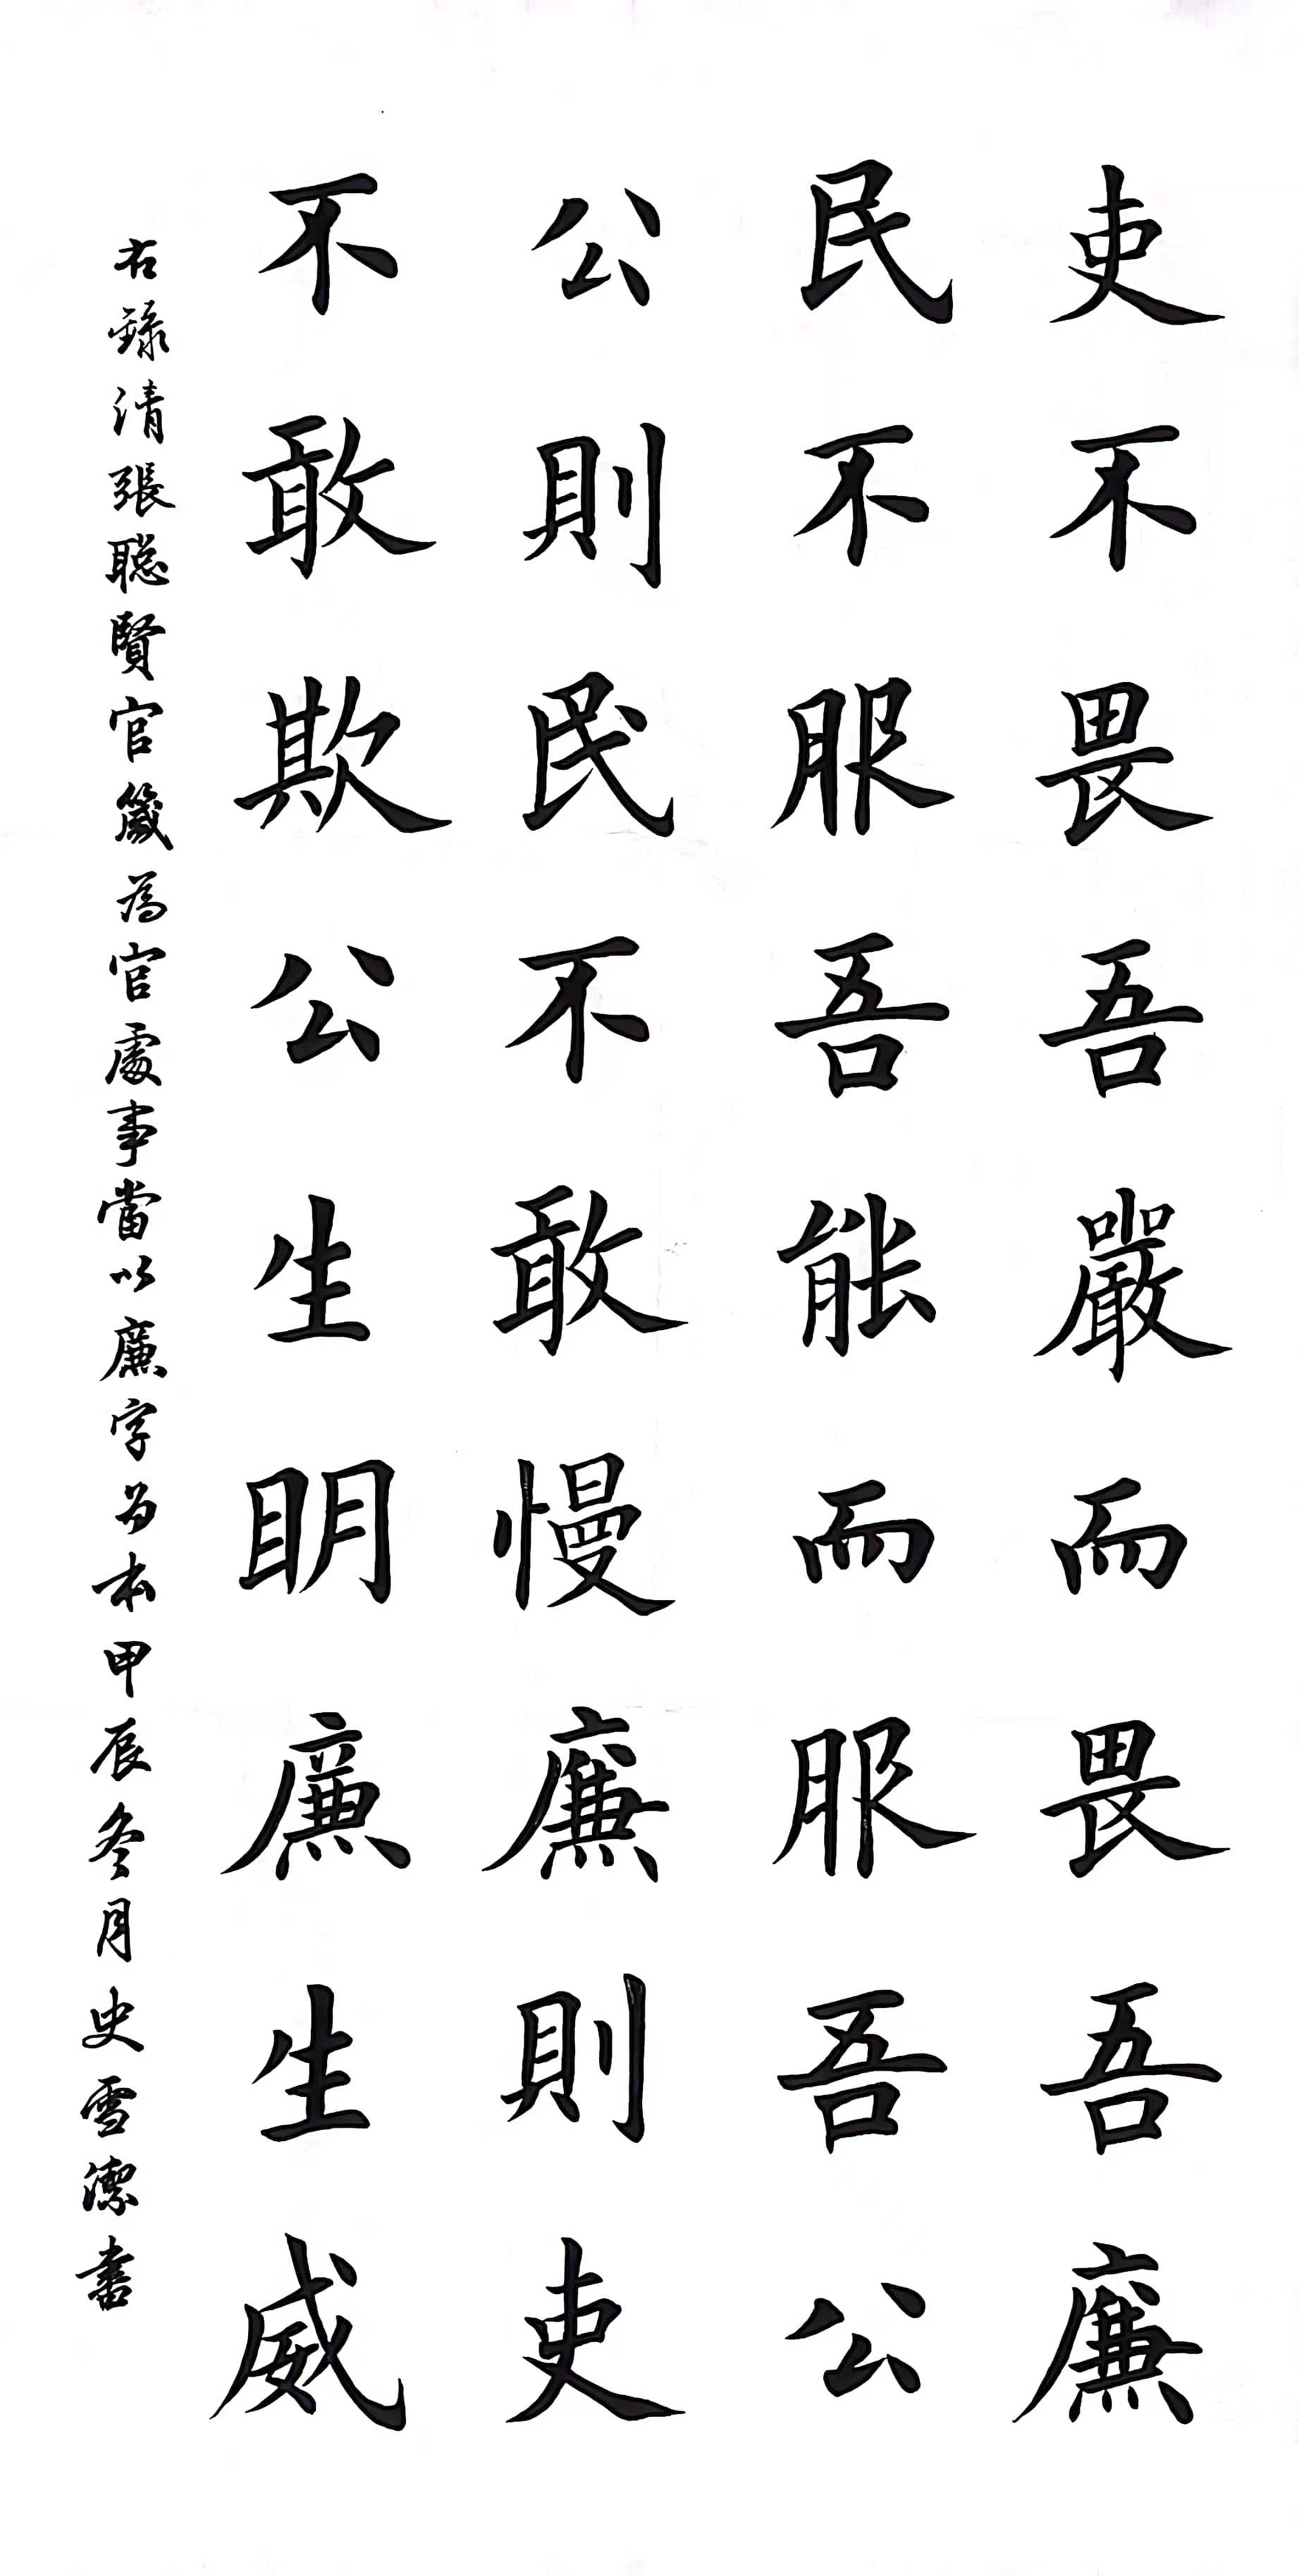 吏不畏吾嚴而畏吾廉
民不服吾能而服吾公
公則民不敢慢廉則吏
不敢欺公生明廉生威
右録清張聡賢官箴為官處事當以廉字为本甲辰冬月史雪潔書